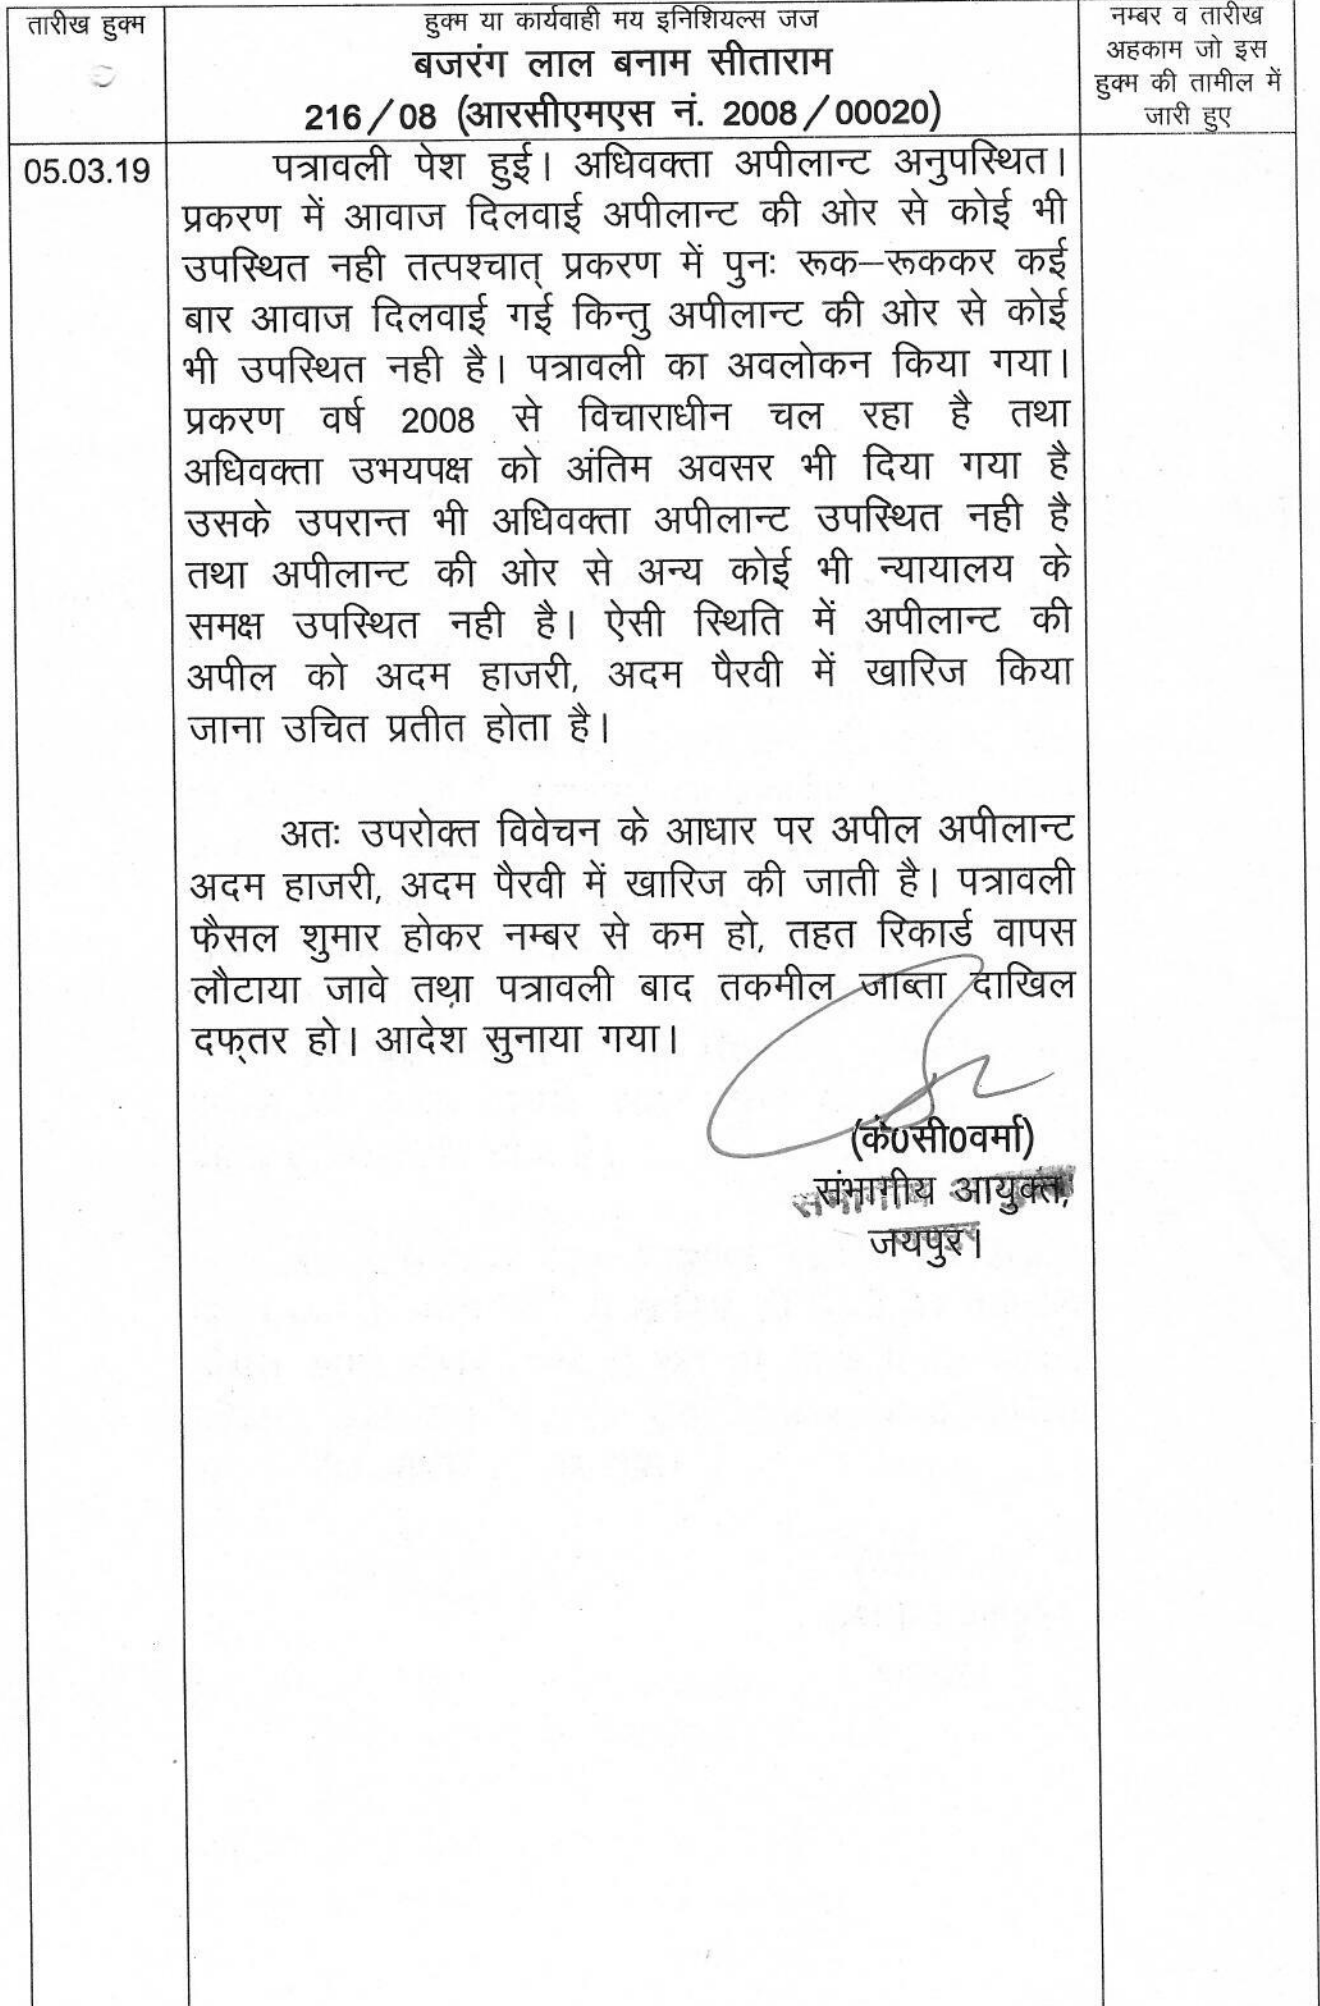 तारीख हुक्म
हुक्म या कार्यवाही मय इनिशियल्स जज
बजरंग लाल बनाम सीताराम
216/08 (आरसीएमएस नं. 2008/00020)
नम्बर व तारीख
अहकाम जो इस
हुक्म की तामील में
जारी हुए
05.03.19
पत्रावली पेश हुई। अधिवक्ता अपीलान्ट अनुपस्थित।
प्रकरण में आवाज दिलवाई अपीलान्ट की ओर से कोई भी
उपस्थित नही तत्पश्चात् प्रकरण में पुनः रूक–रूककर कई
बार आवाज दिलवाई गई किन्तु अपीलान्ट की ओर से कोई
भी उपस्थित नही है। पत्रावली का अवलोकन किया गया।
प्रकरण वर्ष 2008 से विचाराधीन चल रहा है तथा
अधिवक्ता उभयपक्ष को अंतिम अवसर भी दिया गया है
उसके उपरान्त भी अधिवक्ता अपीलान्ट उपस्थित नही है
तथा अपीलान्ट की ओर से अन्य कोई भी न्यायालय के
समक्ष उपस्थित नही है। ऐसी स्थिति में अपीलान्ट की
अपील को अदम हाजरी, अदम पैरवी में खारिज किया
जाना उचित प्रतीत होता है।
अतः उपरोक्त विवेचन के आधार पर अपील अपीलान्ट
अदम हाजरी, अदम पैरवी में खारिज की जाती है। पत्रावली
फैसल शुमार होकर नम्बर से कम हो, तहत रिकार्ड वापस
लौटाया जावे तथा पत्रावली बाद तकमील जाब्ता दाखिल
दफ्तर हो। आदेश सुनाया गया।
(के0सी0वर्मा)
संभागीय आयुक्त,
जयपुर।